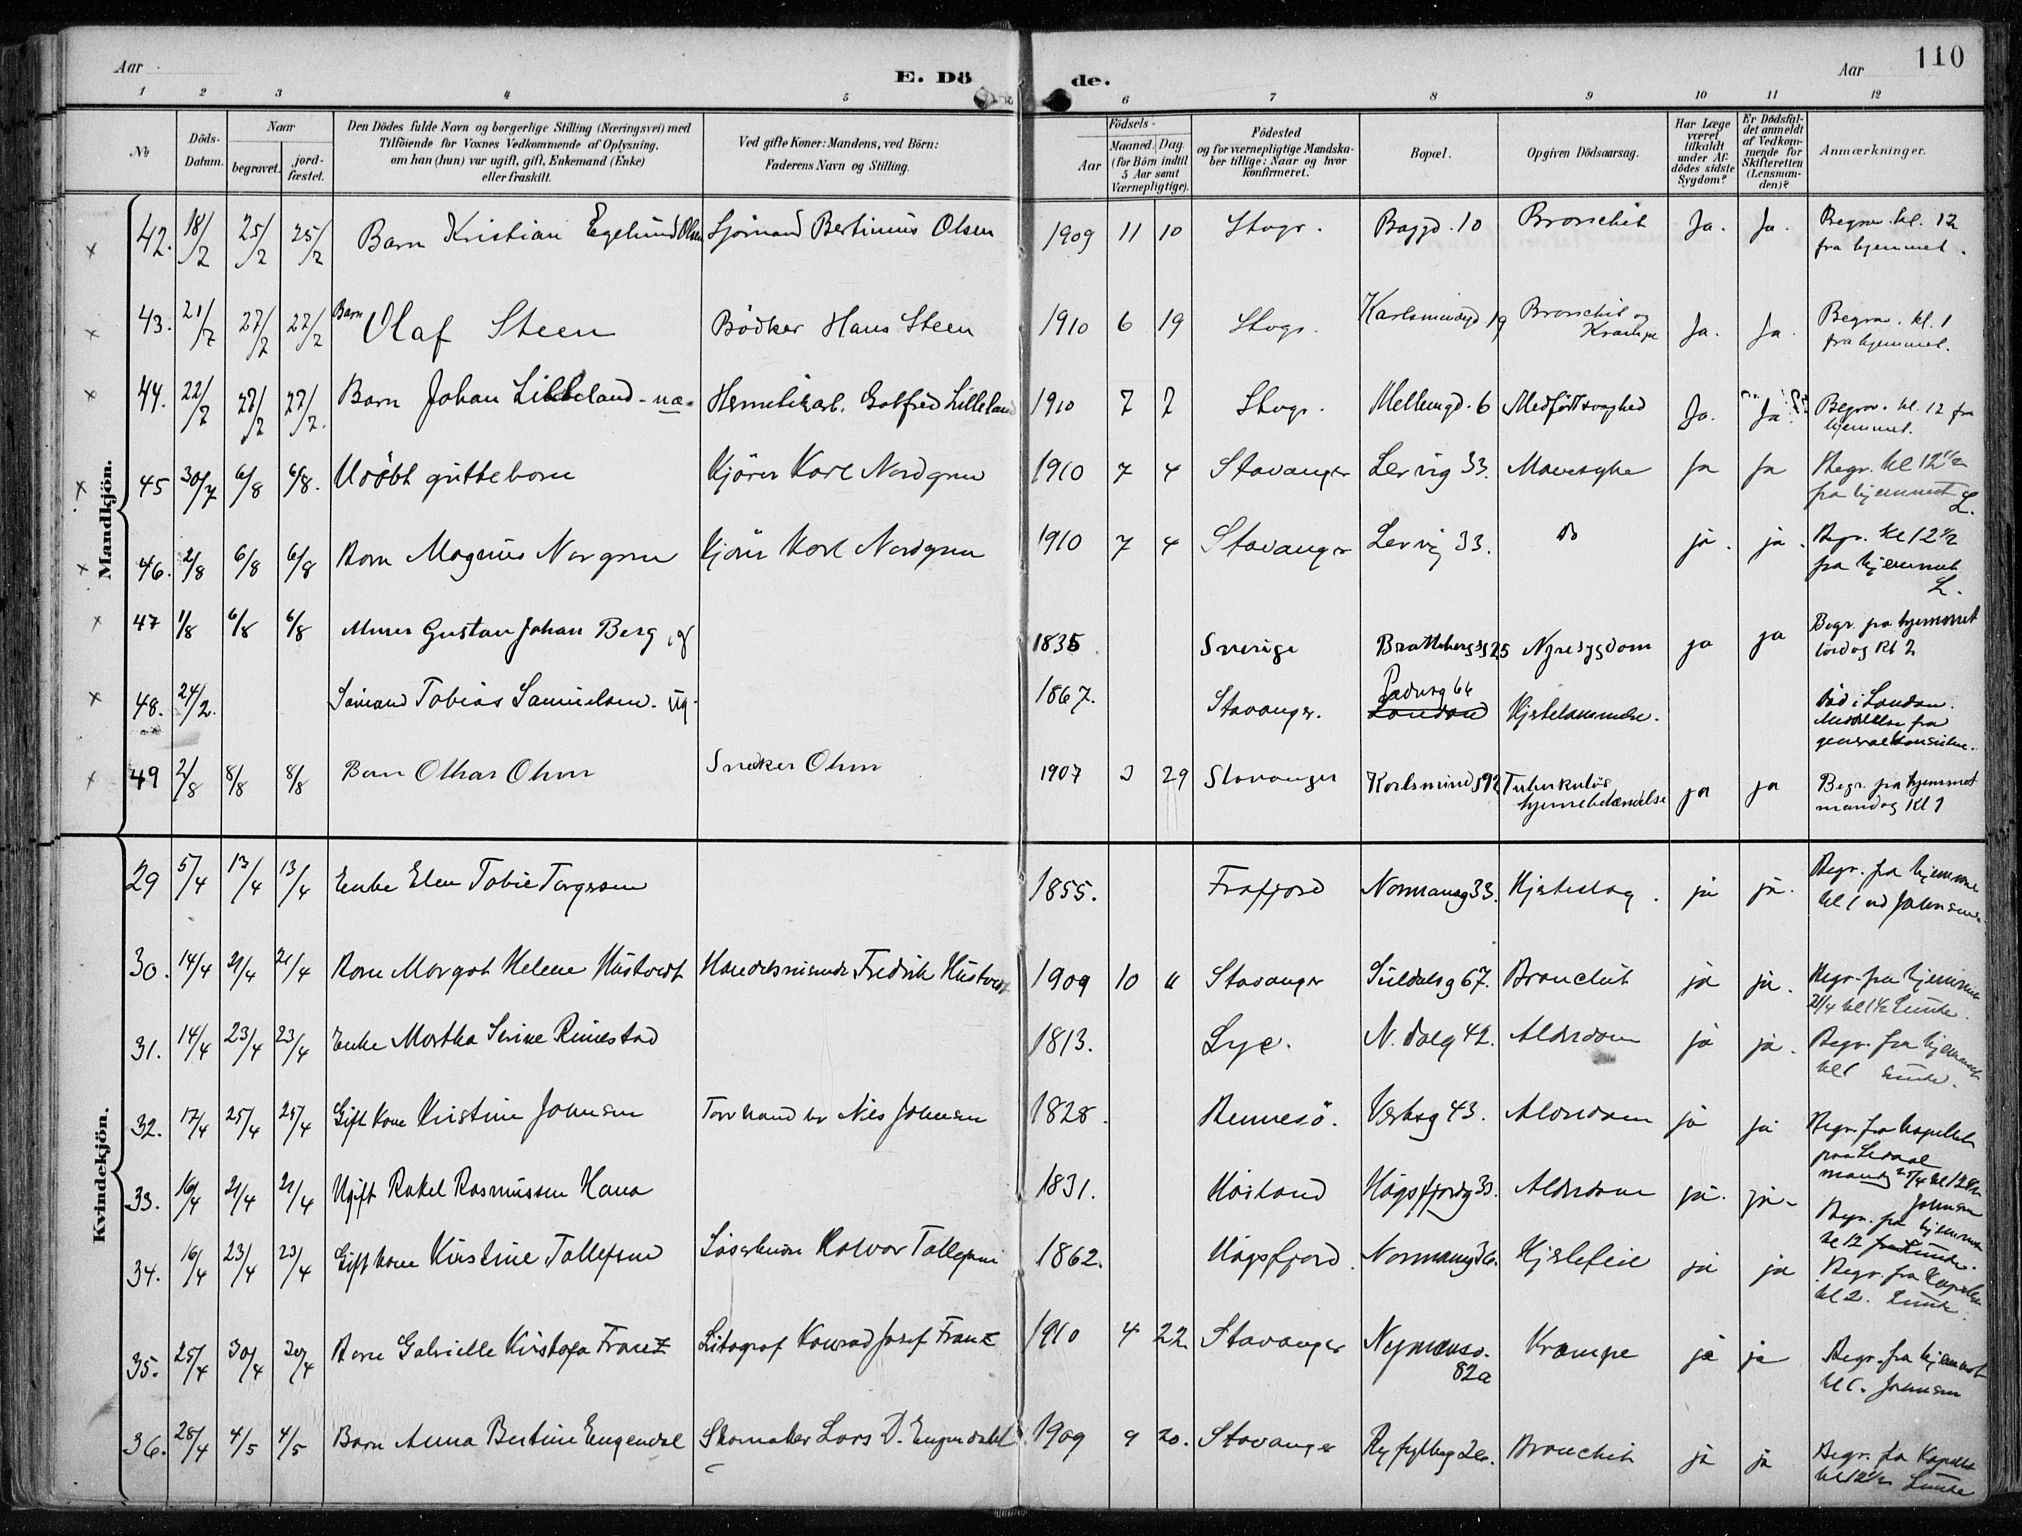 Aar
E. Dö de.
Aar
110
1 2 3 4 5 6 7 8 9 10 11 12
No Döds-Datum. Naar begravet. jord-fæstet.
Den Dödes fulde Navn og borgerlige Stilling (Næringsvei) med
Tilföiende for Voxnes Vedkommende af Oplysning,
om han (hun) var ugift, gift, Enkemand (Enke)
eller fraskilt.
Ved gifte Koner: Mandens, ved Börn:
Faderens Navn og Stilling.
Födsels-
Aar Maaned. Dag.
(for Börn indtil
5 Aar samt
Værnepligtige).
Födested
og for værnepligtige Mandska-
ber tillige: Naar og hvor
konfirmeret.
Bopæl.
Opgiven Dödsaarsag.
Har Læge
været
tilkaldt
under Af-
dödes sidste
Sygdom?
Er Dödsfal-
det anmeldt
af Vedkom-
mende for
Skifteretten
(Lensman-
den)?
Anmærkninger.
Mandkjön.
42. 18/2 25/2 25/2 Barn Kristian Egelund Olsen Sjömand Bertinius Olsen 1909 11 10 Stvgr. Baggd. 10 Bronchit Ja. Ja. Begrav. kl. 12
fra hjemmet.
43. 21/2 27/2 27/2 Barn Olaf Steen Bödker Hans Steen 1910 6 19 Stvgr. 19 Bronchit og
Krampe Ja. Ja. Begrav. kl. 1
fra hjemmet.
44. 22/2 27/2 27/2. Barn Johan Lilleland Gotfred Lilleland 1910 7 7 Stvgr. 6 Medfödt svaghed Ja. Ja. Begrav. kl. 12 fra
hjemmet.
45 30/7 6/8 6/8. Udöbt guttebarn Kjörer Karl Nordgren 1910 7 4 Stavanger Lervig 33. Mavesyke ja ja Begr. kl 12 1/2
fra hjemmet
L.
46. 2/8 6/8 6/8 Barn Magnus Norgren Kjörer Karl Nordgren 1910 7 4 Stavanger Lervig 33. Do ja. ja. Begr. kl 12 1/2
fra hjemmet
L.
47 1/8 6/8 6/8 Murer Gustav Johan Berg, g 1835 Sverige 25 Nyresygdom ja ja Begr. fra hjemmet
lördag kl 2
48. 24/2. Sömand Tobias Samuelsen. ug. 1867. Stavanger. Pedersg 66
London Hjertelammelse. Död i London.
Meddelelse fra
generalkonsulen.
49 2/8 8/8 8/8 Barn Othar Ohm Snekker Ohm 1907 3 29 Stavanger Tuberkulös
hjernebetændelse ja ja Begr. fra hjemmet
mandag kl 1
Kvindekjön.
29 5/4 13/4 13/4 Enke Elen Tobie Torgersen 1855. Frafjord Normansg 33. Hjerteslag. ja ja. Begr. fra hjemme
kl 1 ved Johnsen
30. 14/4 21/4 21/4 Barn Margot Helene Hustvedt Fredrik Hustvedt 1909 10 11 Stavanger Suldalsg 67. Bronchit ja ja. Begr. fra hjemmet
21/4 kl 1 1/2 Lunde.
31. 14/4 23/4 23/4 Enke Martha Serine Rimestad 1813. Lye. N. Dalg 42. Alderdom ja ja. Begr. fra hjemmet
kl 1 Lunde.
32. 17/4 25/4 25/4 Gift kone Kirstine Johnsen Torvhandler Nils Johnsen 1828. Rennesö. Verksg 43. Alderdom ja ja Begr. fra kapellet
paa Ledaal
mandg 25/4 kl 12
Johnsen
33. 16/4 21/4 21/4 Ugift Rakel Rasmussen Hana 1831. Höiland Högsfjordg 33. Alderdom ja. ja. Begr. fra hjemmet
kl 12 Lunde.
34. 16/4 23/4 23/4 Gift kone Kirstine Tollefsen Halvor Tollefsen 1862. Högsfjord Normansg 36. Hjertefeil ja ja Begr. fra Kapellet
kl 2. Lunde.
35. 25/4 30/4 30/4 Barn Gabrielle Kirstofa Franz Litograf Konrad Josef Franz 1910 4 22 Stavanger Nymansv.
82a Krampe ja ja Begr. fra hjemmet
kl 1. Johnsen
36. 28/4 4/5 4/5 Barn Anna Bertine Engendal Skomaker Lars D. Engendahl 1909 9 20. Stavanger Ryfylkeg 26. Bronchit ja ja Begr. fra Kapellet
kl 12 1/2 Lunde